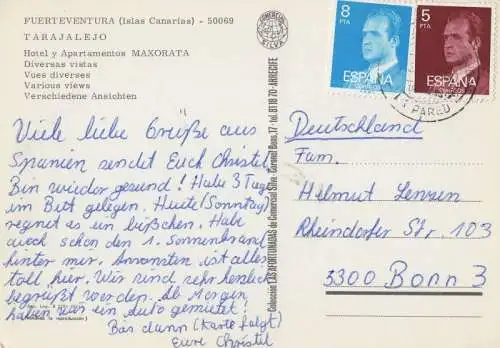 FUERTEVENTURA (Islas Canarias) - 50069
TARAJALEJO
Hotel y Apartamentos MAXORATA
Diversas vistas
Vues diverses
Various views
Verschiedene Ansichten
COMERCIAL
SILVA
8
PTA
ESPAÑA
CORREOS
5
PTA
ESPAÑA
CORREOS
Viele liebe Grüße aus
Spanien sendet Euch Christel.
Bin wieder gesund! Habe 3 Tage
im Bett gelegen. Heute (Sonntag)
regnet es ein bißchen. Habe
auch schon den 1. Sonnenbrand
hinter mir. Ansonsten ist alles
toll hier. Wir sind sehr herzlich
begrüßt worden. Ab Morgen
haben wir ein Auto gemietet!
Bis dann (Karte folgt)
Eure Christel
Colección LAS AFORTUNADAS de Comercial Silva - Coronel Bens, 17 - tel. 81 18 70 - ARRECIFE
Deutschland
Fam.
Helmut Lenzen
Rheindorfer Str. 103
5300 Bonn 3